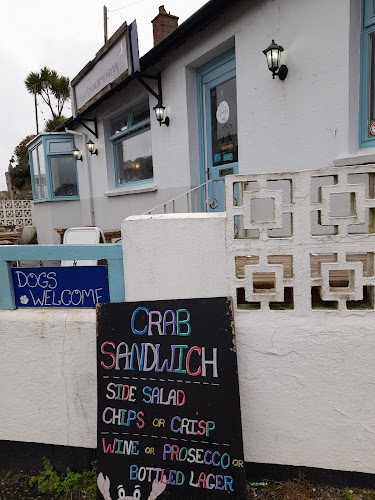 DOGS
WELCOME
CRAB
SANDWICH
SIDE SALAD
CHIPS OR CRISP
WINE OR PROSECCO OR
BOTTLED LAGER